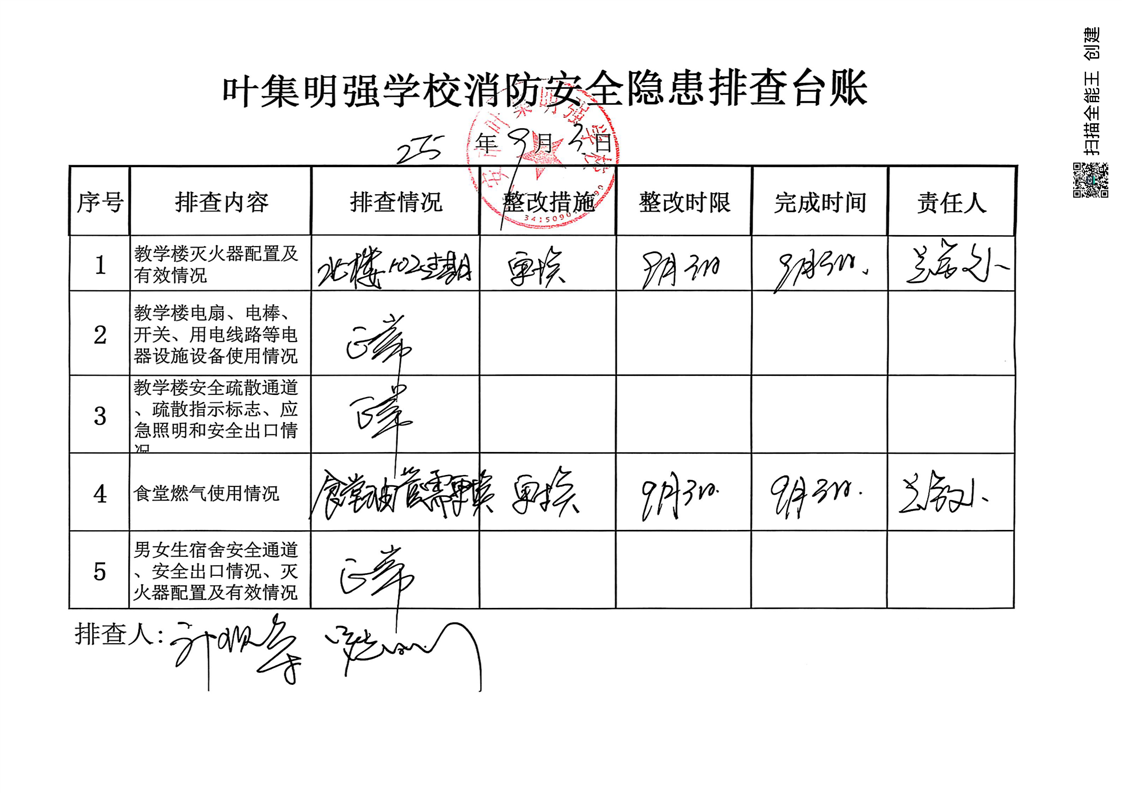 叶集明强学校消防安全隐患排查台账
25年9月3日
序号 排查内容 排查情况 整改措施 整改时限 完成时间 责任人
1 教学楼灭火器配置及 北楼102过期 更换 9月3日 9月3日.
有效情况
2 教学楼电扇、电棒、 正常
开关、用电线路等电
器设施设备使用情况
3 教学楼安全疏散通道 正常
、疏散指示标志、应
急照明和安全出口情
况
4 食堂燃气使用情况 食堂油管需更换 更换 9月3日. 9月3日.
5 男女生宿舍安全通道 正常
、安全出口情况、灭
火器配置及有效情况
排查人:
扫描全能王 创建